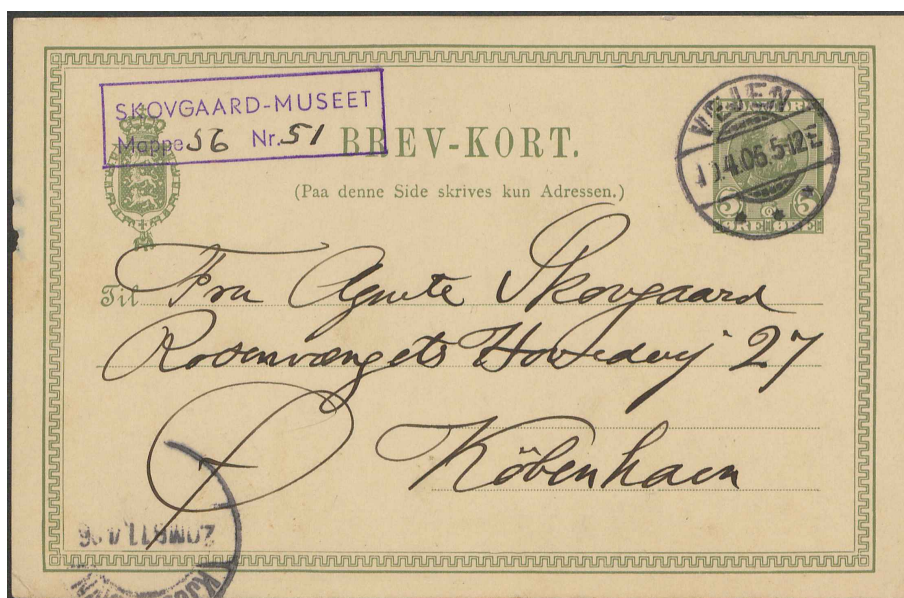 SKOVGAARD-MUSEET
Mappe 56 Nr. 51
BREV-KORT.
(Paa denne Side skrives kun Adressen.)
VEJEN
4.06.5-12E
5 5
ØRE ØRE
Til Fru Agnete Skovgaard
Rosenvængets Hovedvej 27
Ø Köbenhavn